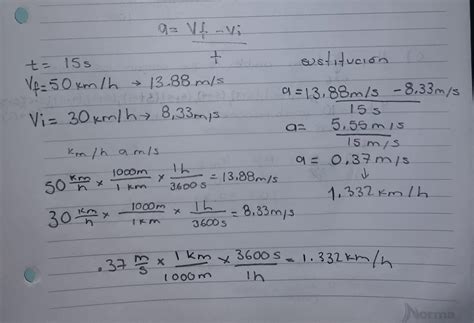 a = Vf - Vi
t
t = 15s
Vf = 50 km/h → 13.88 m/s
Vi = 30 km/h → 8,33 m/s
km/h a m/s
50 km/h x 1000m/1 km x 1h/3600 s = 13.88 m/s
30 km/h x 1000m/1km x 1h/3600s = 8,33 m/s
sustitución
a = 13,88m/s - 8,33m/s
15s
a = 5,55 m/s
15 m/s
a = 0,37 m/s
↓
1.332 km/h
.37 m/s x 1 km/1000m x 3600s/1h = 1.332 km/h
Norma